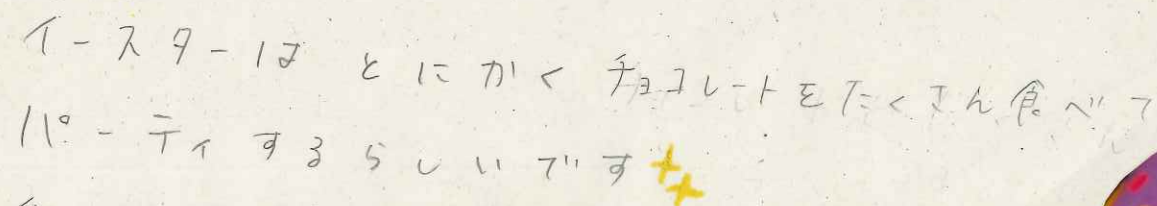 イースターは とにかく チョコレートをたくさん食べて
パーティするらしいです